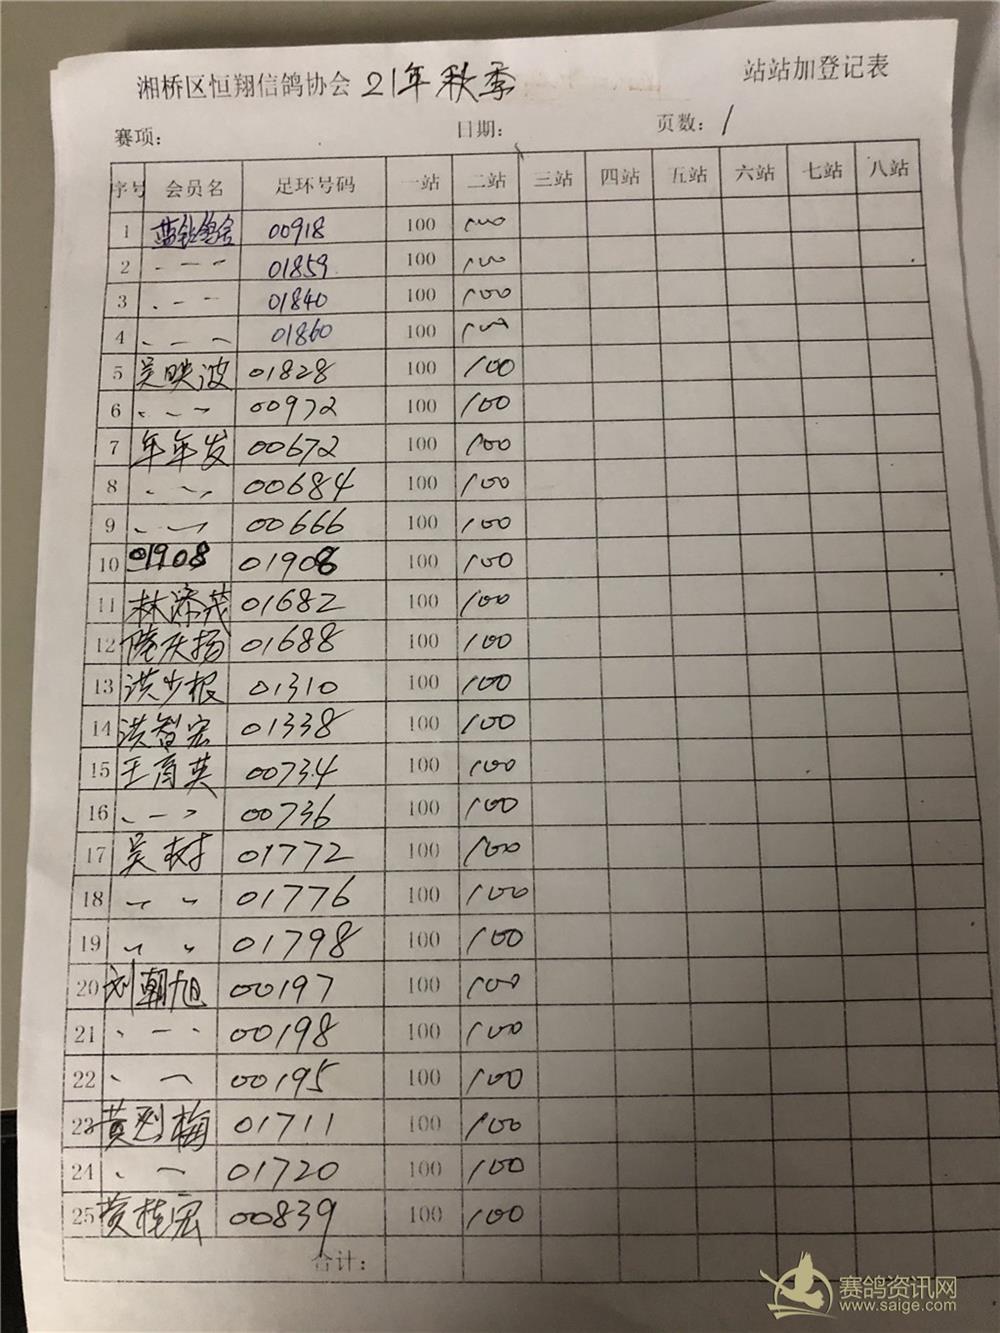 湘桥区恒翔信鸽协会 21年秋季 站站加登记表
赛项： 日期： 页数：1
序号 会员名 足环号码 一站 二站 三站 四站 五站 六站 七站 八站
1 00918 100 100
2 、 一 一 01859 100 100
3 、 一 一 01840 100 100
4 、 一 、 01860 100 100
5 吴映波 01828 100 100
6 、 一 一 00972 100 100
7 年年发 00672 100 100
8 、 一 、 00684 100 100
9 、 一 00666 100 100
10 01908 01908 100 100
11 林添茂 01682 100 100
12 01688 100 100
13 洪少根 01310 100 100
14 洪智宏 01338 100 100
15 王育英 00734 100 100
16 、 一 、 00736 100 100
17 吴树 01772 100 100
18 、 、 01776 100 100
19 、 、 01798 100 100
20 刘朝旭 00197 100 100
21 、 一 、 00198 100 100
22 、 一 00195 100 100
23 黄烈梅 01711 100 100
24 、 一 01720 100 100
25 黄桂宏 00839 100 100
合计：
赛鸽资讯网
www.saige.com